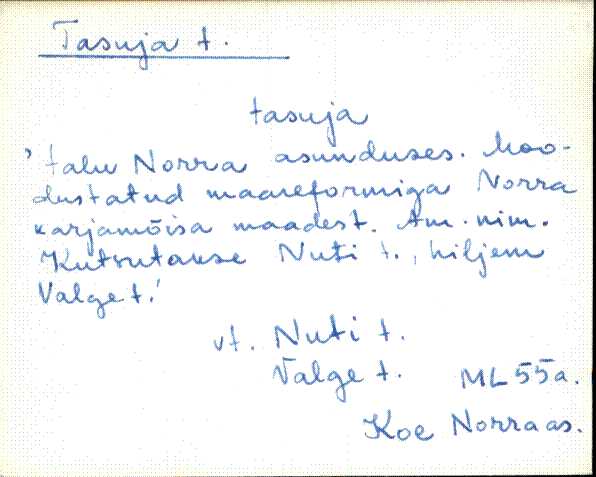 Tasuja t.
tasuja
'talu Norra asunduses. Moo-
dustatud maareformiga Norra
karjamõisa maadest. Am. nim.
Kutsutakse Nuti t., hiljem
Valge t.'
vt. Nuti t.
Valge t. ML 55a.
Koe Norra as.